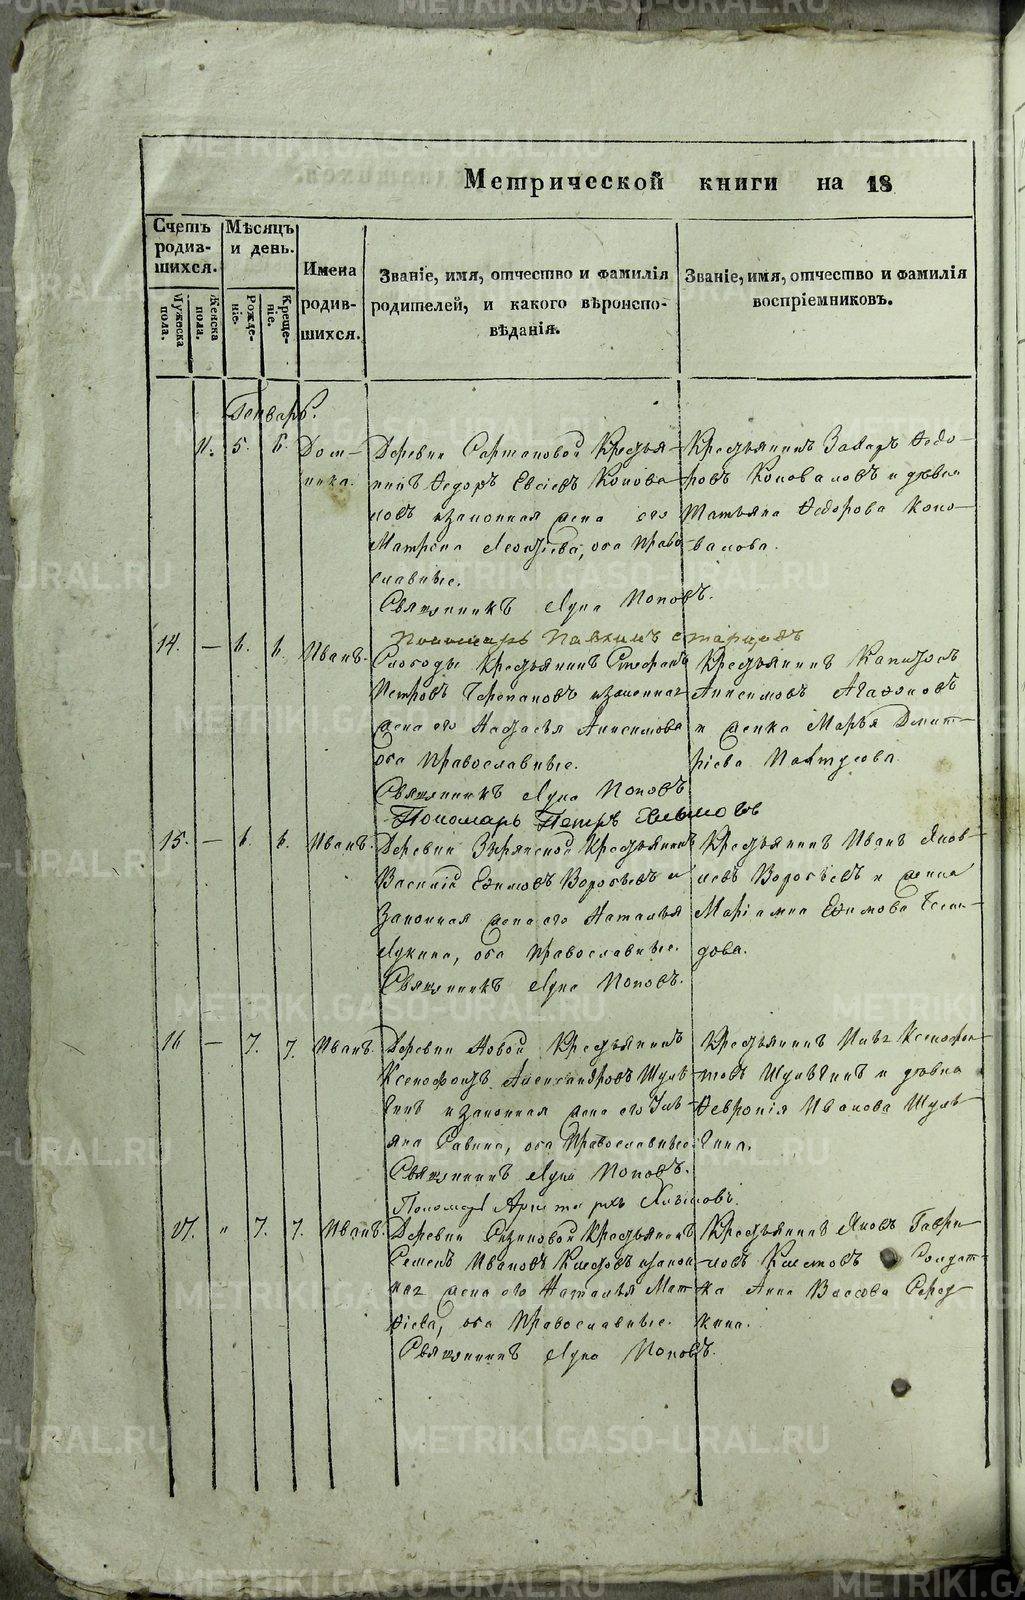 METRIKI.GASO-URAL.RU
Метрической книги на 18
Счетъ родив-шихся.
Мѣсяцъ и день.
Имена родив-шихся.
Званіе, имя, отчество и фамилія родителей, и какого вѣроиспо-вѣданія.
Званіе, имя, отчество и фамилія воспріемниковъ.
Мужеска пола.
Женска пола.
Рожде-ніе.
Креще-ніе.
Генварь.
5. 6. Дом-
ника.
Деревни Крестья-
нинъ Ѳедоръ Евсіевъ Конова-
ловъ и законная жена его
Матрена Леонтіева, оба право-
славные.
Священникъ Лука Поповъ.
Крестьянинъ Захаръ Ѳедо-
ровъ Коноваловъ и дѣвка
Татьяна Ѳедорова Коно-
валова.
Пономарь
14. — 6. 6. Иванъ.
Слободы Крестьянинъ Стефанъ
Петровъ Черепановъ и законная
жена его Настасья Анисимова
оба Православные.
Священникъ Лука Поповъ
Пономарь Петръ Хлыновъ
Крестьянинъ Капитонъ
Анисимовъ Агафоновъ
и женка Марья Дмит-
ріева
15. — 6. 6. Иванъ.
Деревни Зырянской Крестьянинъ
Василій Ефимовъ Воробьевъ и
законная жена его Наталья
Лукина, оба православные.
Священникъ Лука Поповъ.
Крестьянинъ Иванъ Яков-
левъ Воробьевъ и женка
Маріамна Ефимова
16 — 7. 7. Иванъ.
Деревни Новой Крестьянинъ
Ксенофонтъ Александровъ Шуль-
гинъ и законная жена его Уль-
яна Савина, оба Православные.
Священникъ Лука Поповъ.
Пономарь Хлыновъ.
Крестьянинъ Ксенофон-
товъ Шульгинъ и дѣвка
Ѳевронія Иванова Шуль-
гина.
17. " 7. 7. Иванъ.
Деревни Крестьянинъ
Семенъ Ивановъ и закон-
ная жена его Наталья Мат-
ѳіева, оба Православные.
Священникъ Лука Поповъ.
Крестьянинъ Яковъ Гаври-
ловъ Солдат-
ка Анна Власова